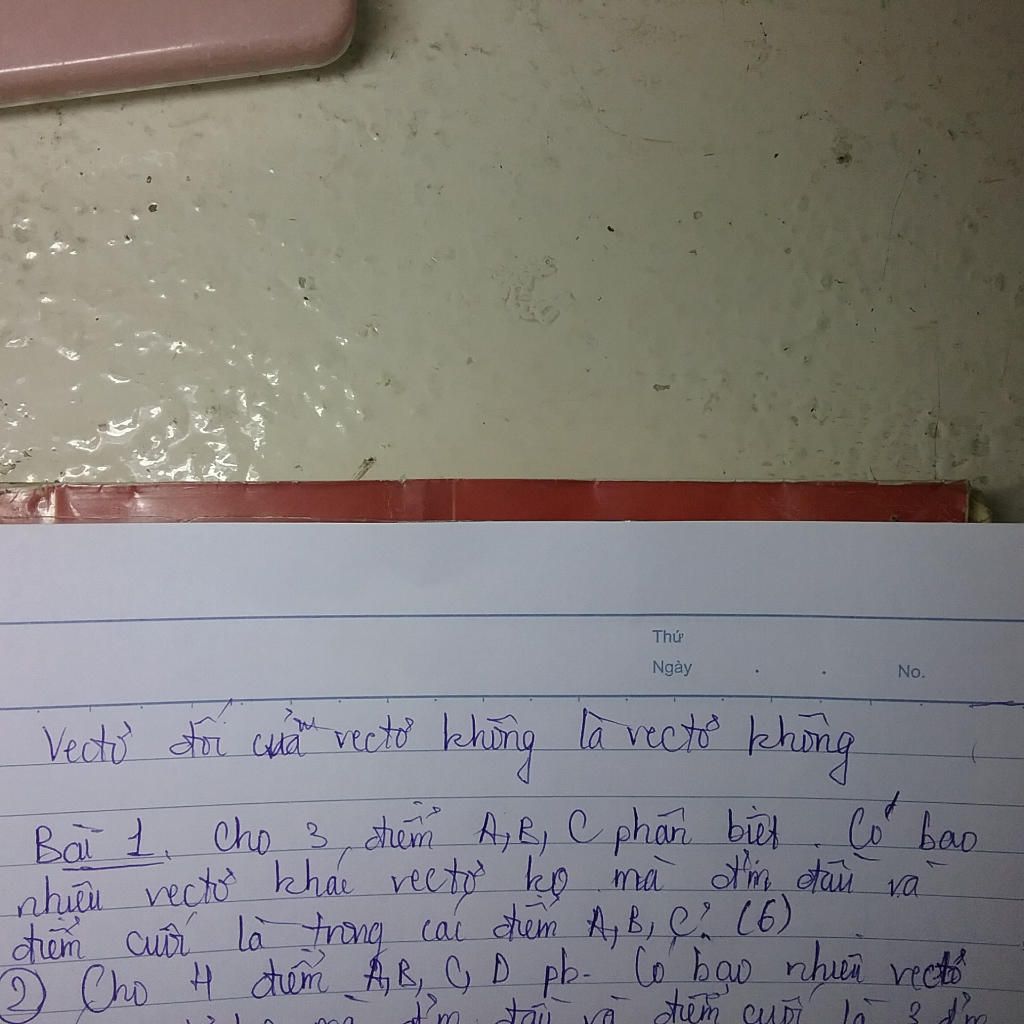 Thứ
Ngày . . No.
Vectơ đối của vectơ không là vectơ không
Bài 1. Cho 3 điểm A, B, C phân biệt. Có bao
nhiêu vectơ khác vectơ ko mà đ'm đầu và
điểm cuối là trong các điểm A, B, C? (6)
② Cho 4 điểm A, B, C, D pb. Có bao nhiêu vectơ
mà đ'm đầu và điểm cuối là 3 đ'm